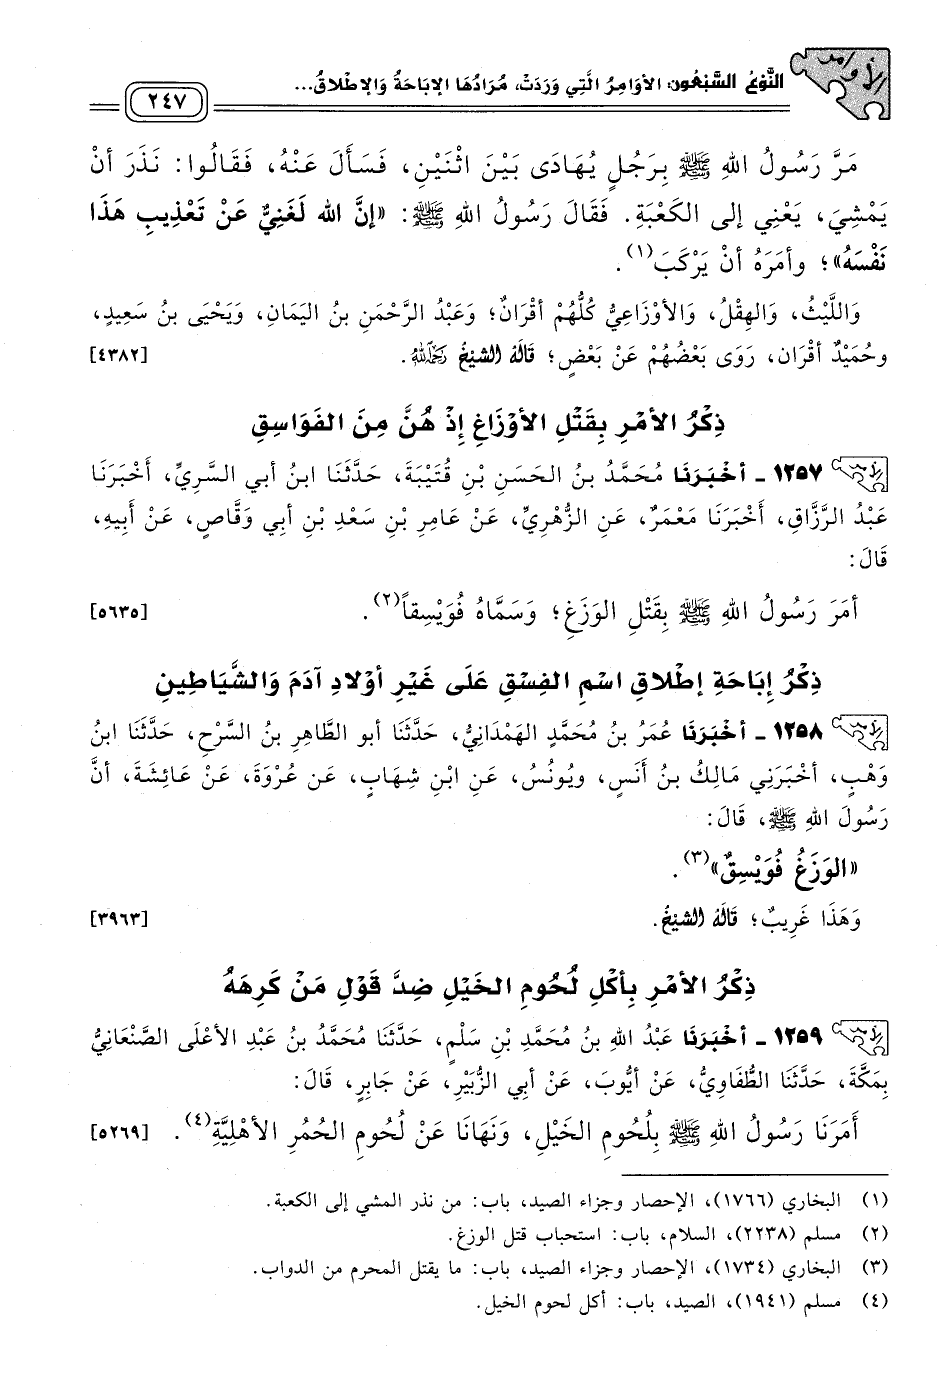 الأوامر
النَّوْعُ السَّبْعُون: الأوَامِرُ الَّتِي وَرَدَتْ، مُرَادُهَا الإبَاحَةُ وَالإطْلَاقُ...
٢٤٧
مَرَّ رَسُولُ اللهِ ﷺ بِرَجُلٍ يُهَادَى بَيْنَ اثْنَيْنِ، فَسَأَلَ عَنْهُ، فَقَالُوا: نَذَرَ أنْ
يَمْشِيَ، يَعْنِي إلى الكَعْبَةِ. فَقَالَ رَسُولُ اللهِ ﷺ: «إنَّ الله لَغَنِيٌّ عَنْ تَعْذِيبِ هَذَا
نَفْسَهُ»؛ وأمَرَهُ أنْ يَرْكَبَ(١).
وَاللَّيْثُ، وَالهِقْلُ، وَالأوْزَاعِيُّ كُلُّهُمْ أقْرَانٌ؛ وَعَبْدُ الرَّحْمَنِ بنُ اليَمَانِ، وَيَحْيَى بنُ سَعِيدٍ،
وحُمَيْدٌ أقْرَان، رَوَى بَعْضُهُمْ عَنْ بَعْضٍ؛ قَالَهُ الشيخُ رَحِمَهُ اللهُ. [٤٣٨٢]
ذِكْرُ الأمْرِ بِقَتْلِ الأوْزَاغِ إذْ هُنَّ مِنَ الفَوَاسِقِ
١٢٥٧ ـ أخْبَرَنَا مُحَمَّدُ بنُ الحَسَنِ بْنِ قُتَيْبَةَ، حَدَّثَنَا ابنُ أبي السَّرِيِّ، أَخْبَرَنَا
عَبْدُ الرَّزَّاقِ، أَخْبَرَنَا مَعْمَرٌ، عَنِ الزُّهْرِيِّ، عَنْ عَامِرِ بْنِ سَعْدِ بْنِ أبي وَقَّاصٍ، عَنْ أَبِيهِ،
قَالَ:
أمَرَ رَسُولُ اللهِ ﷺ بِقَتْلِ الوَزَغِ؛ وَسَمَّاهُ فُوَيْسِقاً(٢). [٥٦٣٥]
ذِكْرُ إبَاحَةِ إطْلَاقِ اسْمِ الفِسْقِ عَلَى غَيْرِ أوْلَادِ آدَمَ وَالشَّيَاطِينِ
١٢٥٨ ـ أخْبَرَنَا عُمَرُ بنُ مُحَمَّدٍ الهَمْدَانِيُّ، حَدَّثَنَا أبو الطَّاهِرِ بنُ السَّرْحِ، حَدَّثَنَا ابنُ
وَهْبٍ، أخْبَرَنِي مَالِكُ بنُ أنَسٍ، ويُونُسُ، عَنِ ابْنِ شِهَابٍ، عَن عُرْوَةَ، عَنْ عَائِشَةَ، أنَّ
رَسُولَ اللهِ ﷺ، قَالَ:
«الوَزَغُ فُوَيْسِقٌ»(٣).
وَهَذَا غَرِيبٌ؛ قَالَهُ الشيخُ. [٣٩٦٣]
ذِكْرُ الأمْرِ بِأكْلِ لُحُومِ الخَيْلِ ضِدَّ قَوْلِ مَنْ كَرِهَهُ
١٢٥٩ ـ أخْبَرَنَا عَبْدُ اللهِ بنُ مُحَمَّدِ بْنِ سَلْمٍ، حَدَّثَنَا مُحَمَّدُ بنُ عَبْدِ الأعْلَى الصَّنْعَانِيُّ
بِمَكَّةَ، حَدَّثَنَا الطُّفَاوِيُّ، عَنْ أيُّوبَ، عَنْ أبي الزُّبَيْرِ، عَنْ جَابِرٍ، قَالَ:
أَمَرَنَا رَسُولُ اللهِ ﷺ بِلُحُومِ الخَيْلِ، وَنَهَانَا عَنْ لُحُومِ الحُمُرِ الأهْلِيَّةِ(٤). [٥٢٦٩]
(١) البخاري (١٧٦٦)، الإحصار وجزاء الصيد، باب: من نذر المشي إلى الكعبة.
(٢) مسلم (٢٢٣٨)، السلام، باب: استحباب قتل الوزغ.
(٣) البخاري (١٧٣٤)، الإحصار وجزاء الصيد، باب: ما يقتل المحرم من الدواب.
(٤) مسلم (١٩٤١)، الصيد، باب: أكل لحوم الخيل.